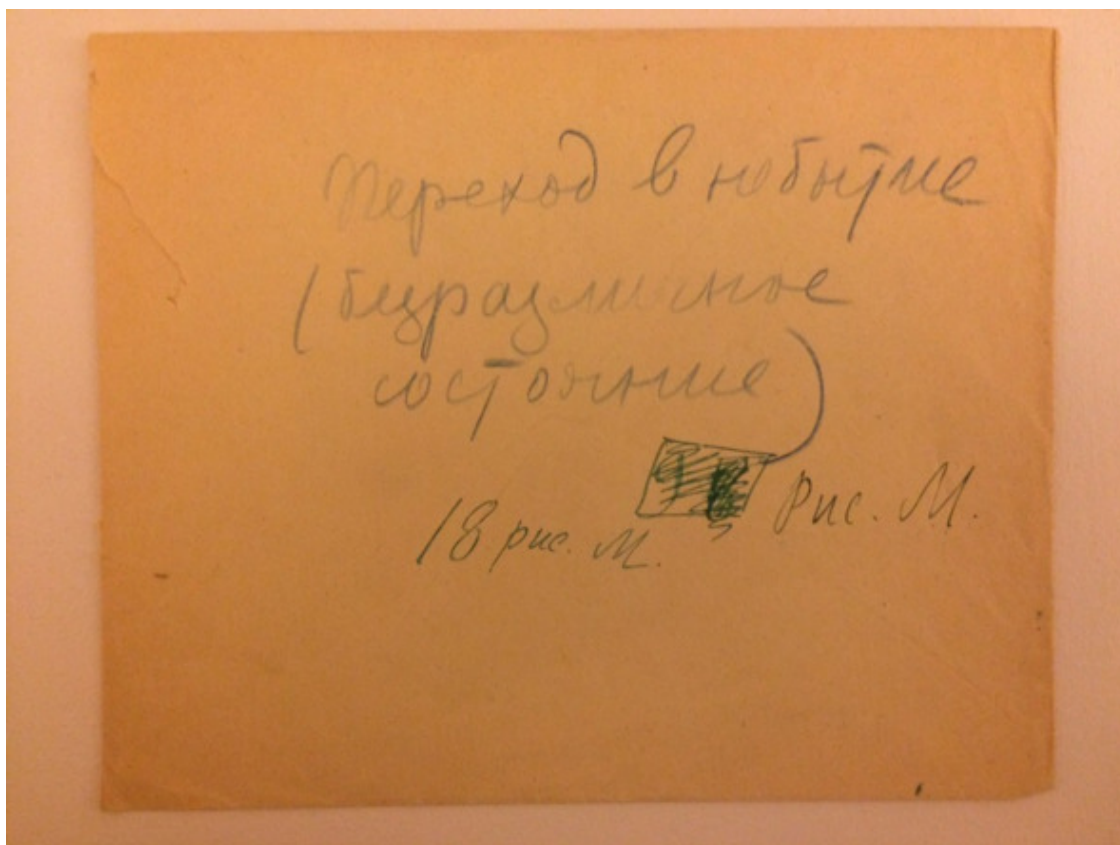 Переход в небытие
(безразличное
состояние)
18 рис. М. Рис. М.